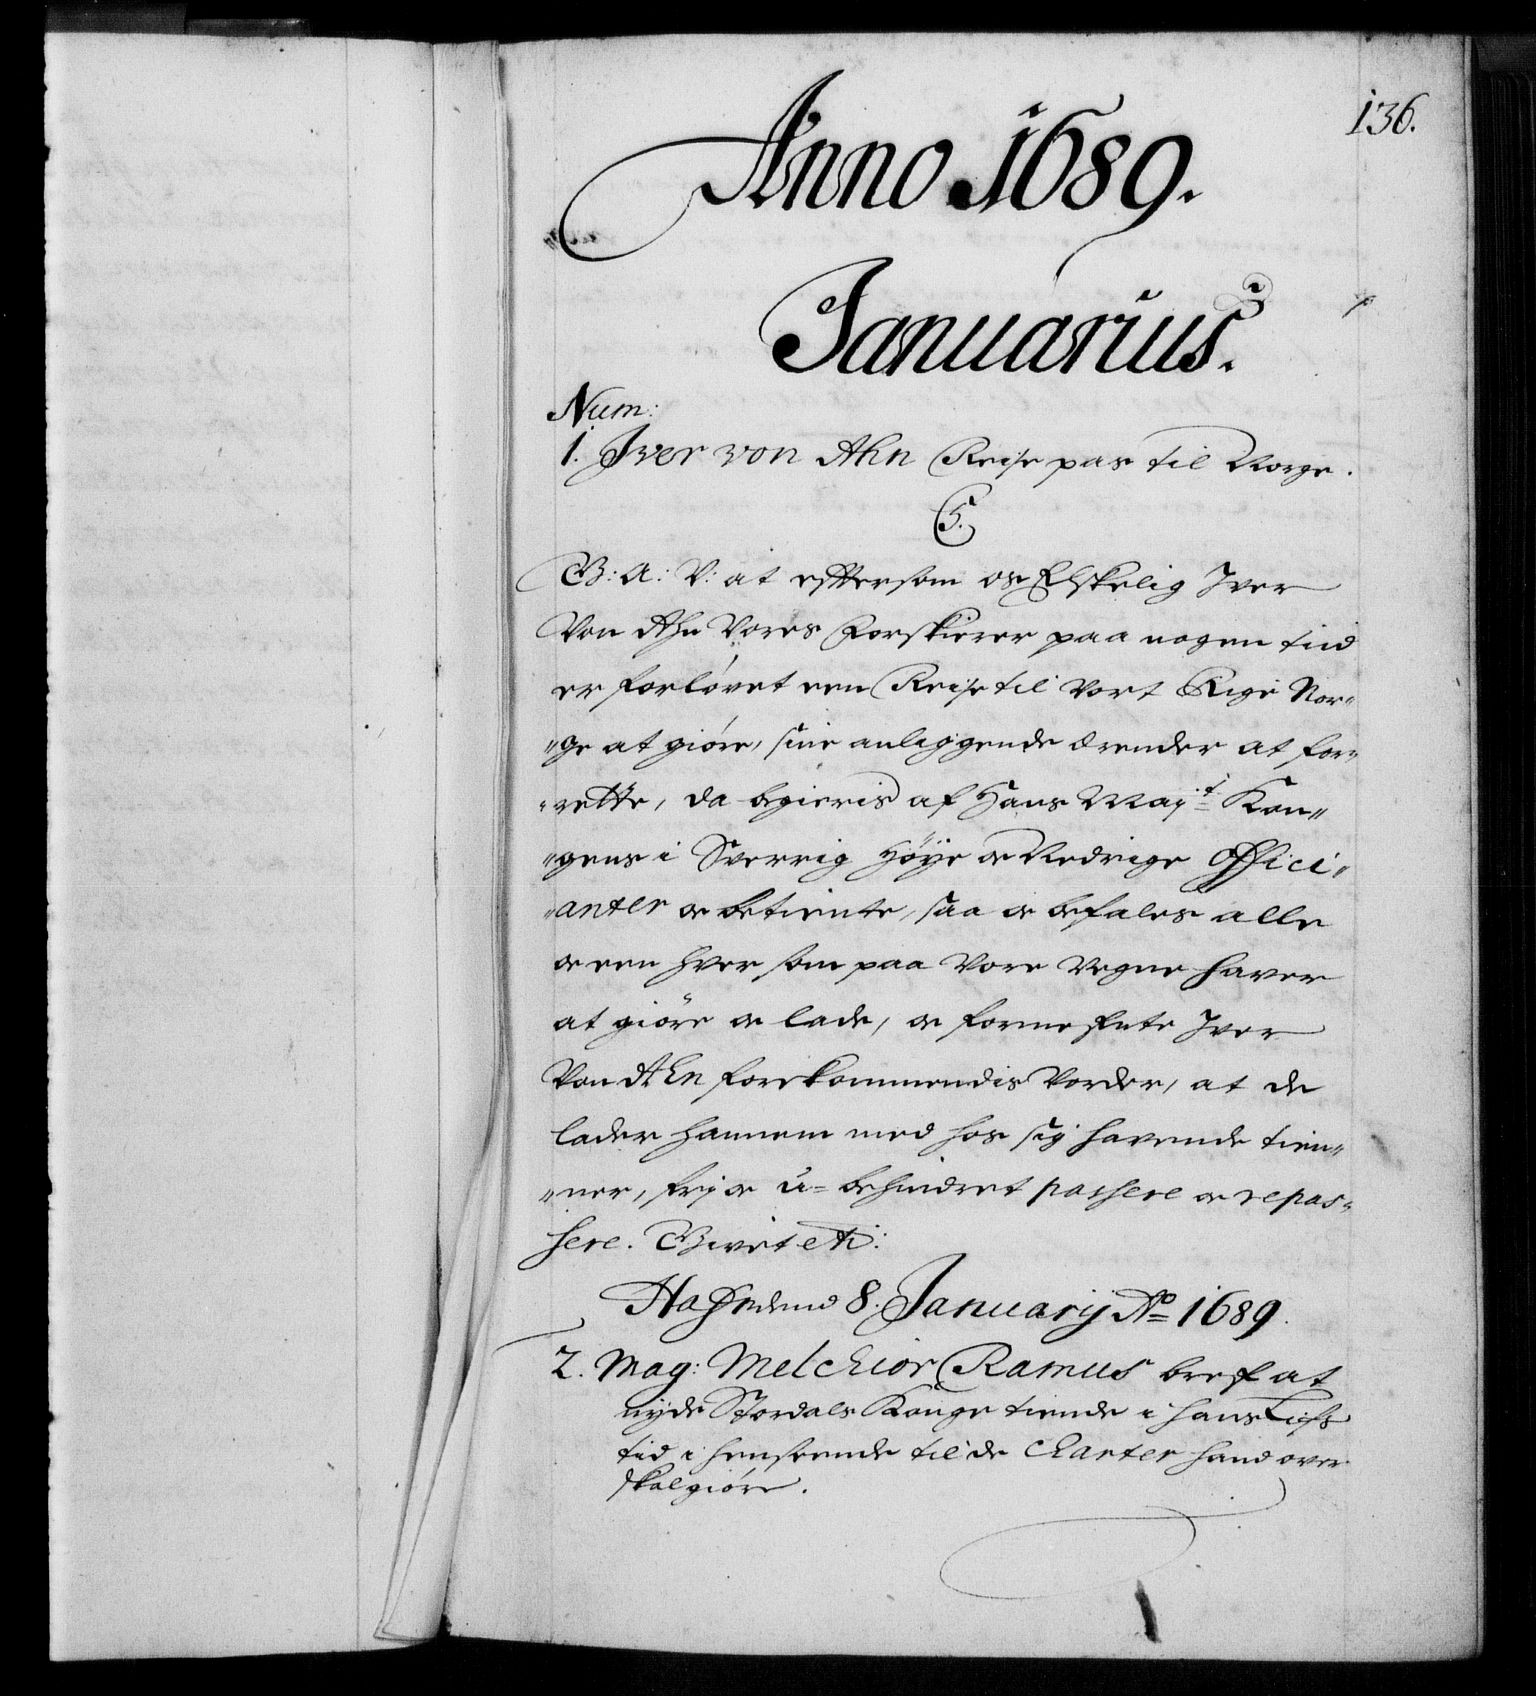 136.
Anno 1689.
Januarius.
Num:
1. Iver von Ahn Reise pas til Norge.
C5.
G: A: V: at eftersom os Elskelig Iver
Von Ahn Vores Forskierer paa nogen tiid
er forlóvet een Reise til Vort Rige Nor„
„ge at gióre, sine anliggende ærender at for„
„rette, da begieris af Hans Maj:t Kon„
„gens i Sverrig Höye oc Nedrige Offici„
„anter oc betiente, saa oc befales alle
oc een hver som paa Vore Vegne haver
at giöre oc lade, oc formeskrefne Iver
Von Ahn forekommendis Vorder, at de
lader hannem med hos sig havende tien„
„ner, frj oc u=behindret passere oc repas„
sere. Givet etc:
Hafn dend 8. Januarij Ao 1689.
2. Mag: Melchior Ramus bref at
nyde Stordals Konge tiende i hans Lifs
tid i henseende til de Charter hand over
skal gióre.